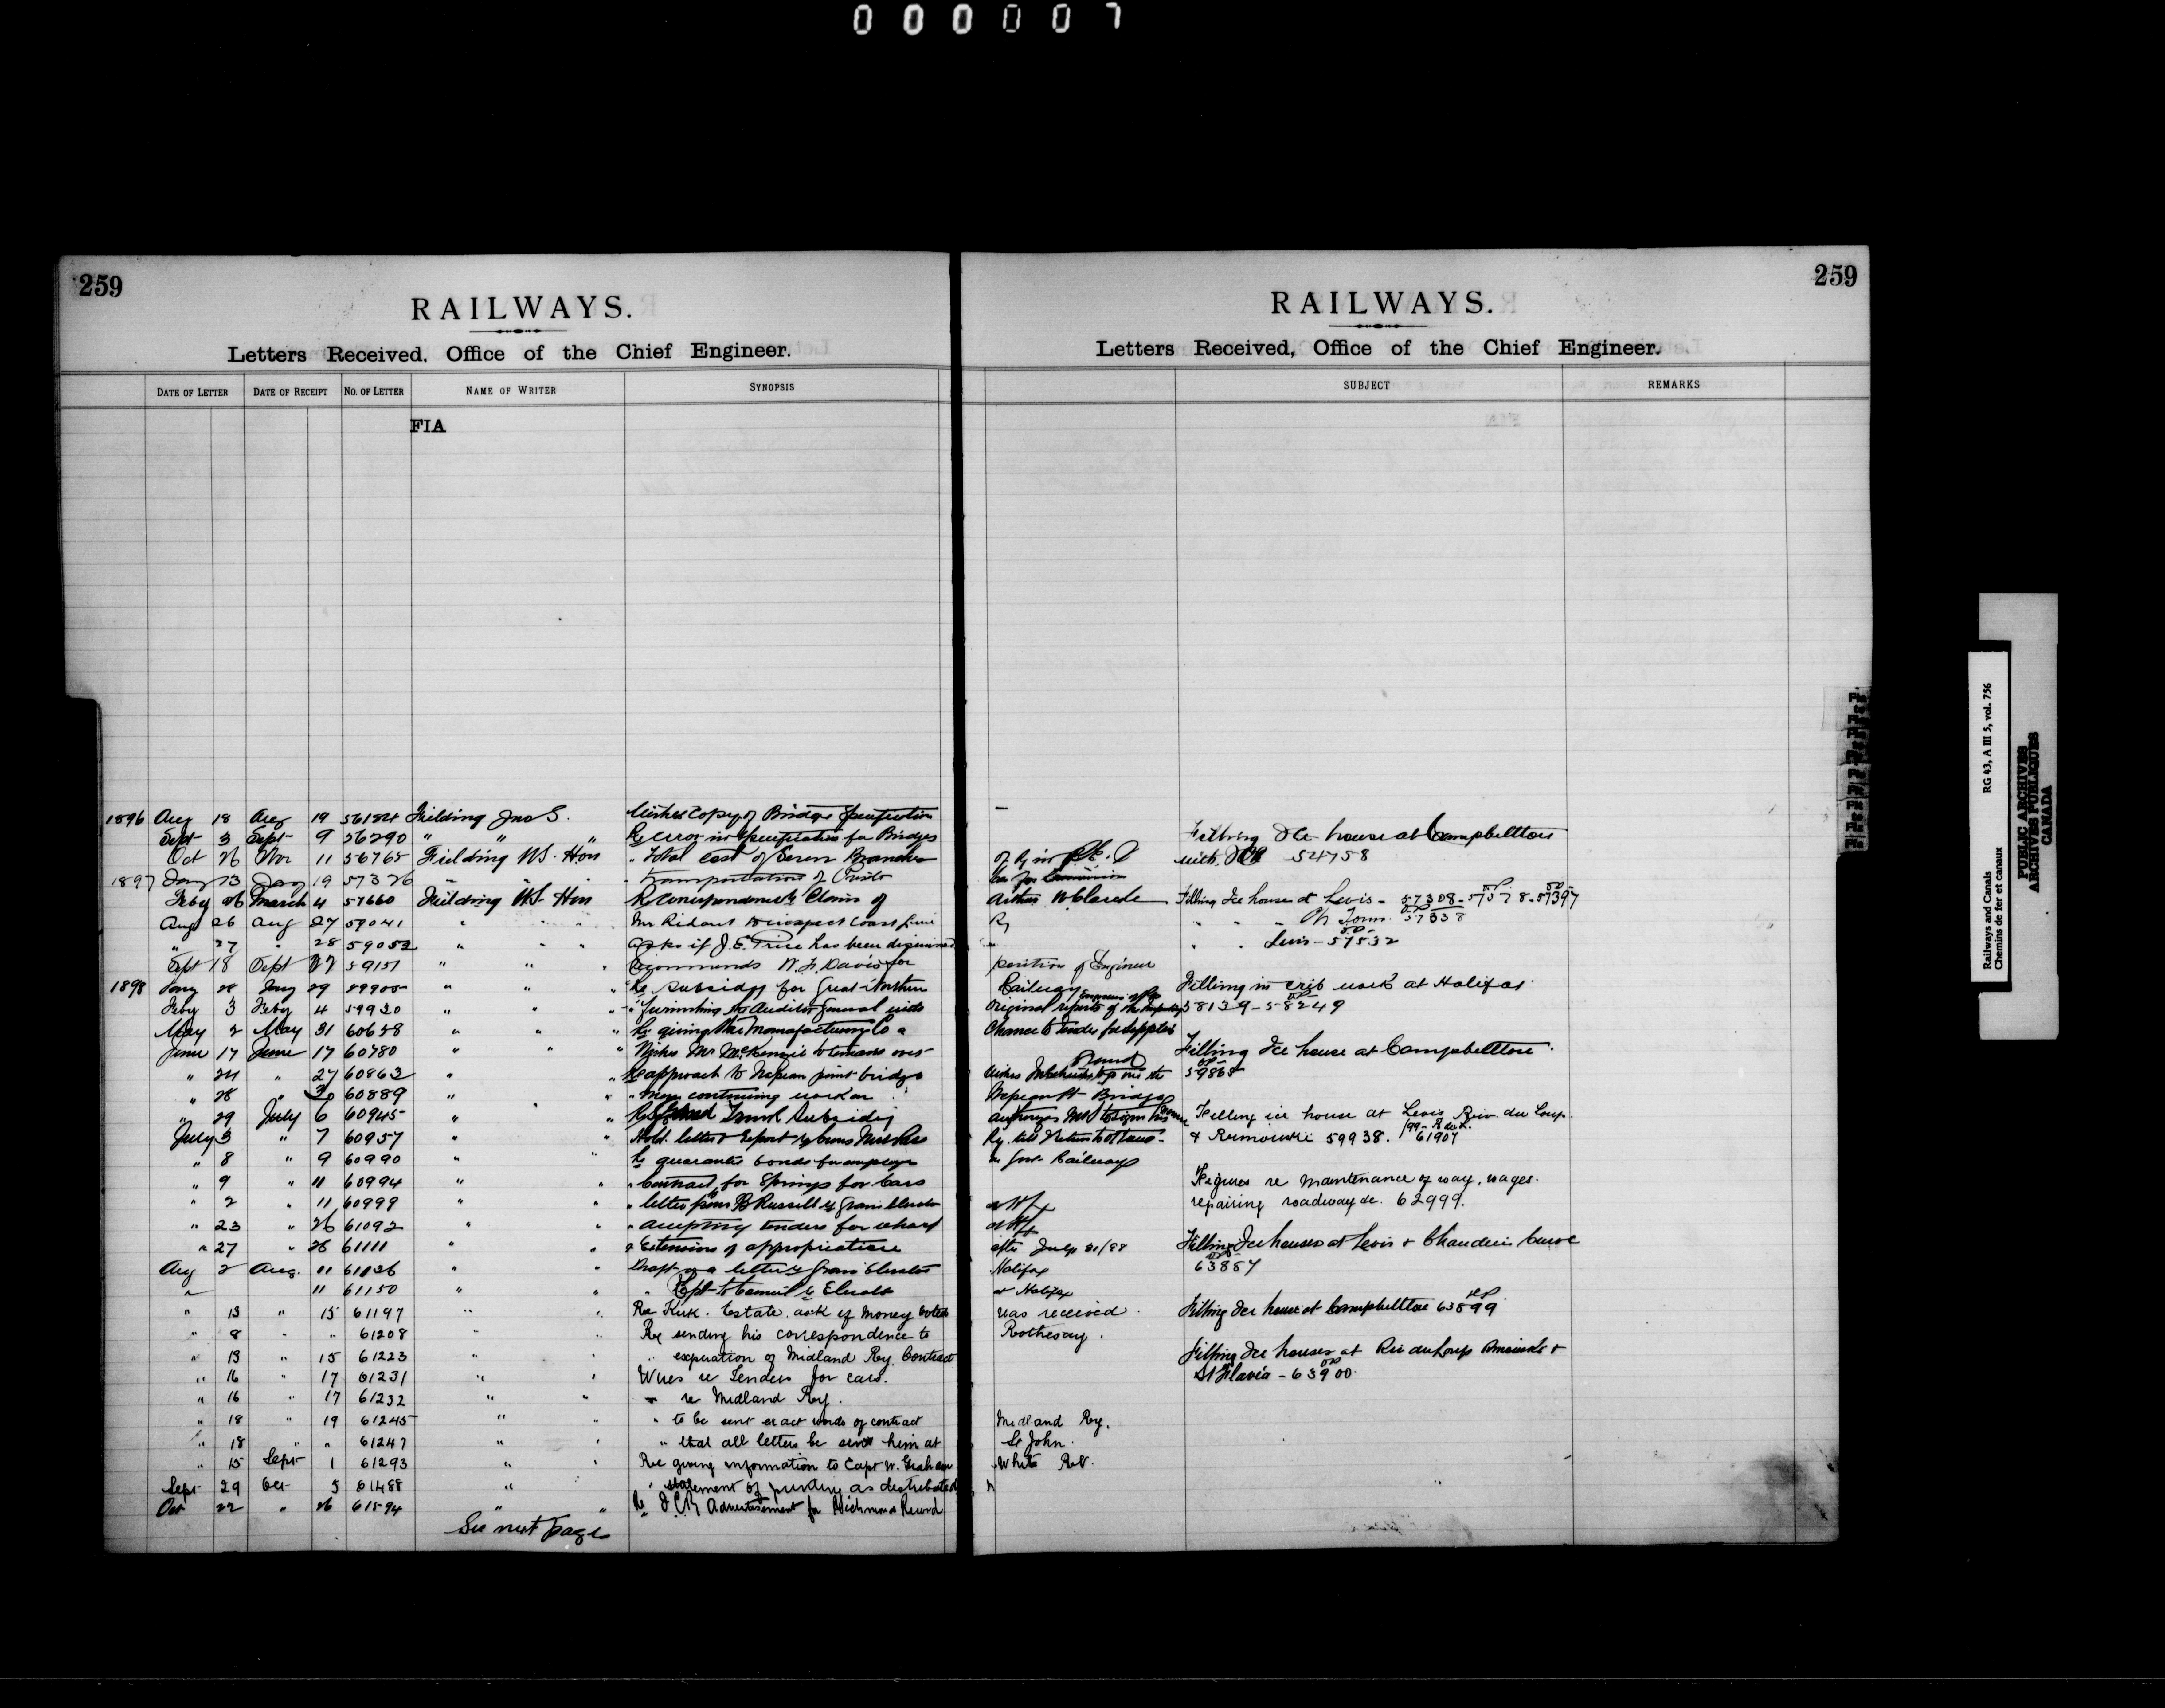 000007
259
RAILWAYS.
Letters Received, Office of the Chief Engineer.
DATE OF LETTER DATE OF RECEIPT NO. OF LETTER NAME OF WRITER SYNOPSIS
FIA
1896 Aug 18 Aug 19 56184 Fielding Jno S. Wishes Copy of Bridge Specification
Sept 3 Sept 9 56290 " " " Re error in Specification for Bridges
Oct 26 Nov 11 56765 Fielding W.S. Hon " Total cost of Branches
1897 Jany 13 Jany 19 57326 " " " Transportation of
Feby 26 March 4 57660 Fielding W.S. Hon Re Correspondence re Claim of
Aug 26 Aug 27 59041 " " " Mr Ridout to inspect Coast Line
" 27 " 28 59052 " " " Asks if J.E. Price has been dismissed
Sept 18 Sept 22 59151 " " " Recommends W. F. Davis for
1898 Jany 28 Jany 29 59905 " " " Re Subsidy for Great Northern
Feby 3 Feby 4 59930 " " " furnishing to Auditor General with
May 2 May 31 60658 " " " Re giving Manufacturing Co a
June 17 June 17 60780 " " " Wishes Mr McKennie
" 24 " 27 60863 " " Re approach to Nepean point bridge
" 28 " 30 60889 " " continuing work on
" 29 July 6 60945 " " " Subsidy
July 3 " 7 60957 " " Hold letter & Report
" 8 " 9 60990 " " Re guarantee bonds for employe
" 9 " 11 60994 " " " Contract for Springs for Cars
" 2 " 11 60999 " " " letter from B Russell re Grain Elevator
" 23 " 26 61092 " " " accepting tenders for wharf
" 27 " 28 61111 " " " Extensions of appropriation
Aug 2 Aug. 11 61136 " " Draft of a letter re Grain Elevator
" 11 61150 " " " Rept to Council re Elevator
" 13 " 15 61197 " " Re Kirk. Estate. ask if money voted
" 8 " " 61208 " " Re sending his correspondence to
" 13 " 15 61223 " " " expiration of Midland Ry. Contract
" 16 " 17 61231 " " Wires re Tenders for cars.
" 16 " 17 61232 " " " re Midland Ry.
" 18 " 19 61245 " " " to be sent exact words of contract
" 18 " " 61247 " " " that all letters be sent him at
" 15 Sept 1 61293 " " Re giving information to Capt W. Graham
Sept 29 Oct 5 61488 " " statement of funding as distributed
Oct 22 " 26 61594 " " Re I.C.Ry Advertisement for Richmond Record
See next page
259
RAILWAYS.
Letters Received, Office of the Chief Engineer.
SUBJECT REMARKS
Filling Ice house at Campbellton
with ICE 54758
Arthur W Clarke Filling Ice house at Levis - 57308 - 57578 - 57397
Ry " " Ch Town. 57338
" " Levis - 57532
position of Engineer
Railway Filling in crib work at Halifax
Original reports of the 58139 - 58249
Chance to tender for supplies
Filling Ice house at Campbellton.
59865
Nepean Pt Bridge
Filling ice house at Levis Riv. du Loup
& Rimouski 59938. 61907
on Govt Railways
Figures re maintenance of way, wages.
repairing roadway &c. 62999.
after July 31/98 Filling Ice houses at Levis & Chaudiere Curve
Halifax 63857
at Halifax
was received. Filling Ice house at Campbellton 63899
Rothesay.
Filling Ice houses at Riv du Loup Rimouski &
St Flavia - 63900.
Midland Ry.
St John.
White Rv.
Railways and Canals RG 43, A III 5, vol. 756
Chemins de fer et canaux
PUBLIC ARCHIVES
ARCHIVES PUBLIQUES
CANADA